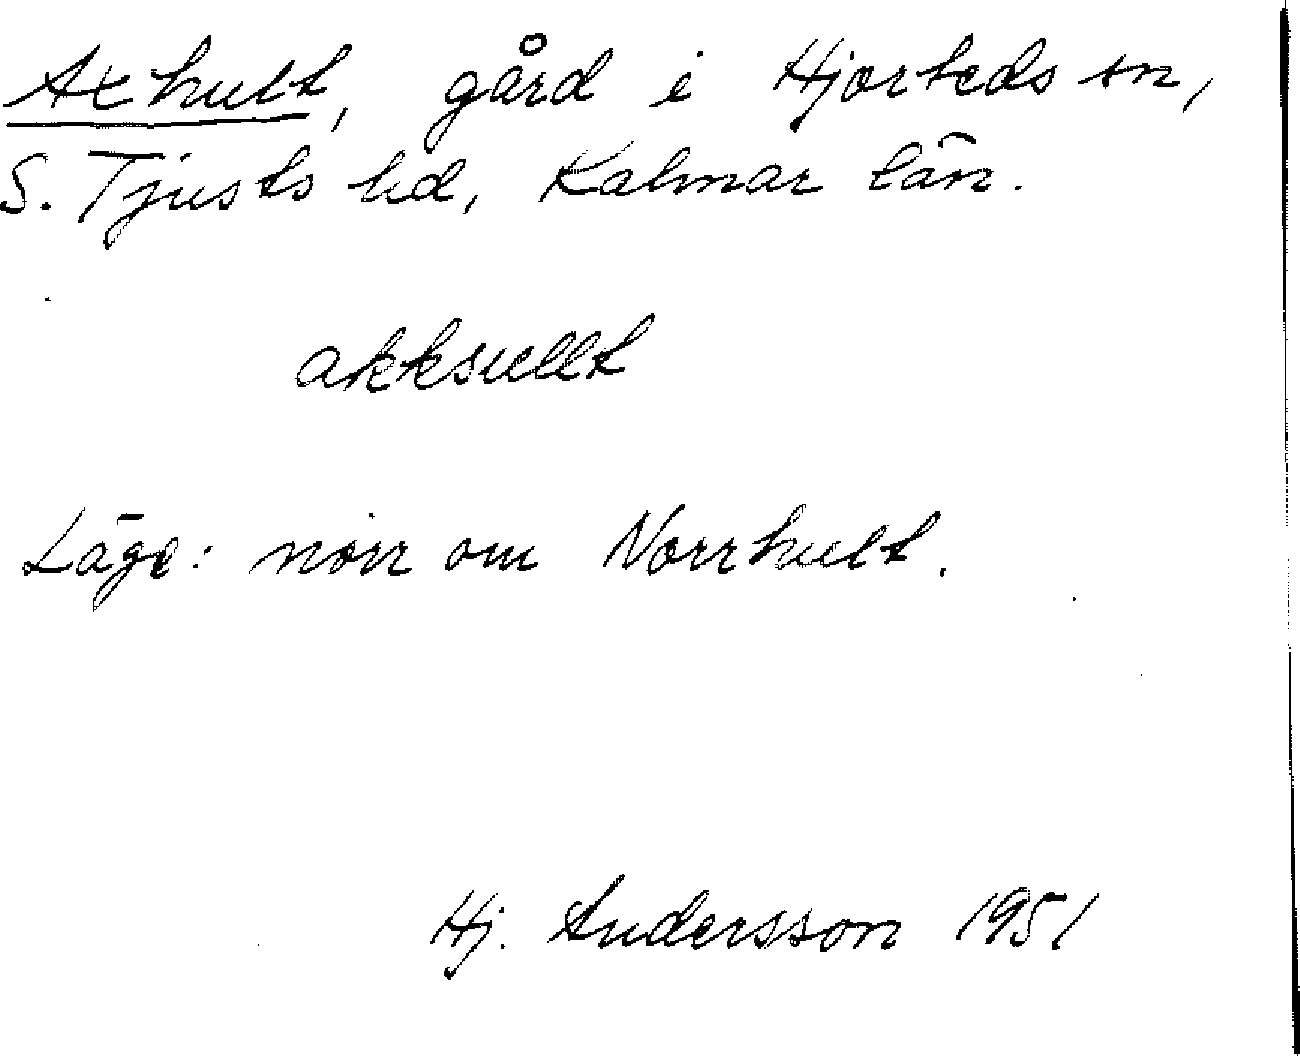 Axhult, gård i Hjorteds sn,
S. Tjusts hd, Kalmar län.
akksullt
Läge: norr om Norrhult.
Hj. Andersson 1951